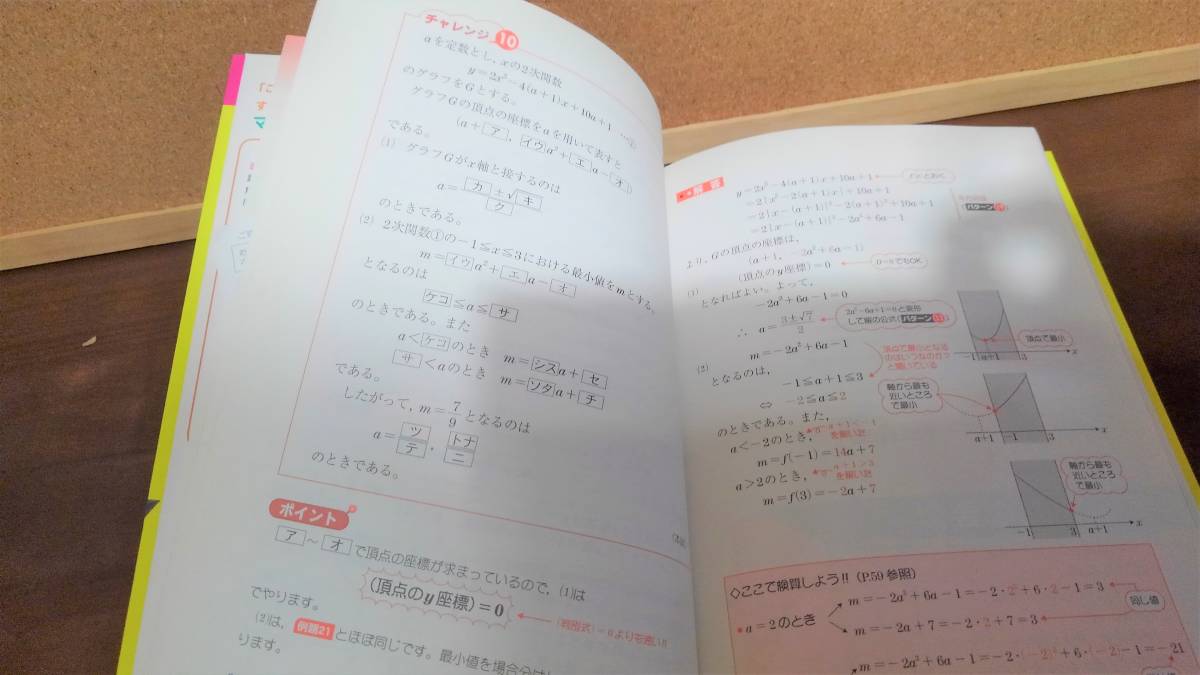 チャレンジ 10
aを定数とし，xの2次関数
y=2x²−4(a+1)x+10a+1 …①
のグラフをGとする。
グラフGの頂点の座標をaを用いて表すと
(a+ア，イウa²+エa−オ)
である。
(1) グラフGがx軸と接するのは
a=カ±√キ/ク
のときである。
(2) 2次関数①の−1≦x≦3における最小値をmとする。
m=イウa²+エa−オ
となるのは
ケコ≦a≦サ
のときである。また
a<ケコのとき m=シスa+セ
サ<aのとき m=ソタa+チ
である。
したがって，m=7/9となるのは
a=ツ/テ，トナ/ニ
のときである。
ポイント
ア～オで頂点の座標が求まっているので，(1)は
(頂点のy座標)=0
でやります。
(2)は，例題21とほぼ同じです。最小値を場合分け
ります。
解答
y=2x²−4(a+1)x+10a+1
=2{x²−2(a+1)x}+10a+1
=2{x−(a+1)}²−2(a+1)²+10a+1
=2{x−(a+1)}²−2a²+6a−1
パターン
より，Gの頂点の座標は，
(a+1，−2a²+6a−1)
(1) (頂点のy座標)=0
D=0でもOK
となればよい。よって，
−2a²+6a−1=0
∴ a=3±√7/2
2a²−6a+1=0と変形
して解の公式(パターン11)
(2) m=−2a²+6a−1
となるのは，
頂点で最小となる
のはいつなのか？
と聞いている
−1≦a+1≦3
⇔ −2≦a≦2
のときである。また，
a<−2のとき，
m=f(−1)=14a+7
a>2のとき，
m=f(3)=−2a+7
頂点で最小
−1 a+1 3 x
軸から最も
近いところ
で最小
a+1 −1 3 x
軸から最も
近いところ
で最小
−1 3 a+1 x
◇ここで検算しよう!!（P.59参照）
a=2のとき
m=−2a²+6a−1=−2・2²+6・2−1=3
m=−2a+7=−2・2+7=3
同じ値
m=−2a²+6a−1=−2・(−2)²+6・(−2)−1=−21